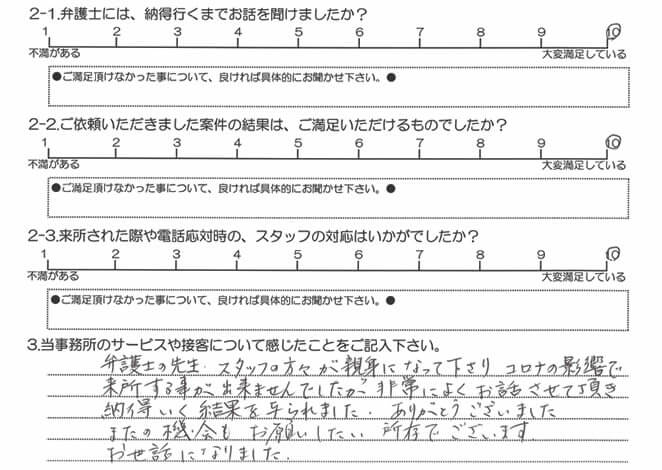 2-1.弁護士には、納得行くまでお話を聞けましたか？
1 2 3 4 5 6 7 8 9 10
不満がある 大変満足している
●ご満足頂けなかった事について、良ければ具体的にお聞かせ下さい。●
2-2.ご依頼いただきました案件の結果は、ご満足いただけるものでしたか？
1 2 3 4 5 6 7 8 9 10
不満がある 大変満足している
●ご満足頂けなかった事について、良ければ具体的にお聞かせ下さい。●
2-3.来所された際や電話応対時の、スタッフの対応はいかがでしたか？
1 2 3 4 5 6 7 8 9 10
不満がある 大変満足している
●ご満足頂けなかった事について、良ければ具体的にお聞かせ下さい。●
3.当事務所のサービスや接客について感じたことをご記入下さい。
弁護士の先生.スタッフの方々が親身になって下さり コロナの影響で
来所する事が出来ませんでしたが 非常によくお話させて頂き
納得いく結果を得られました. ありがとうございました
またの機会も お願いしたい 所存でございます.
お世話になりました.